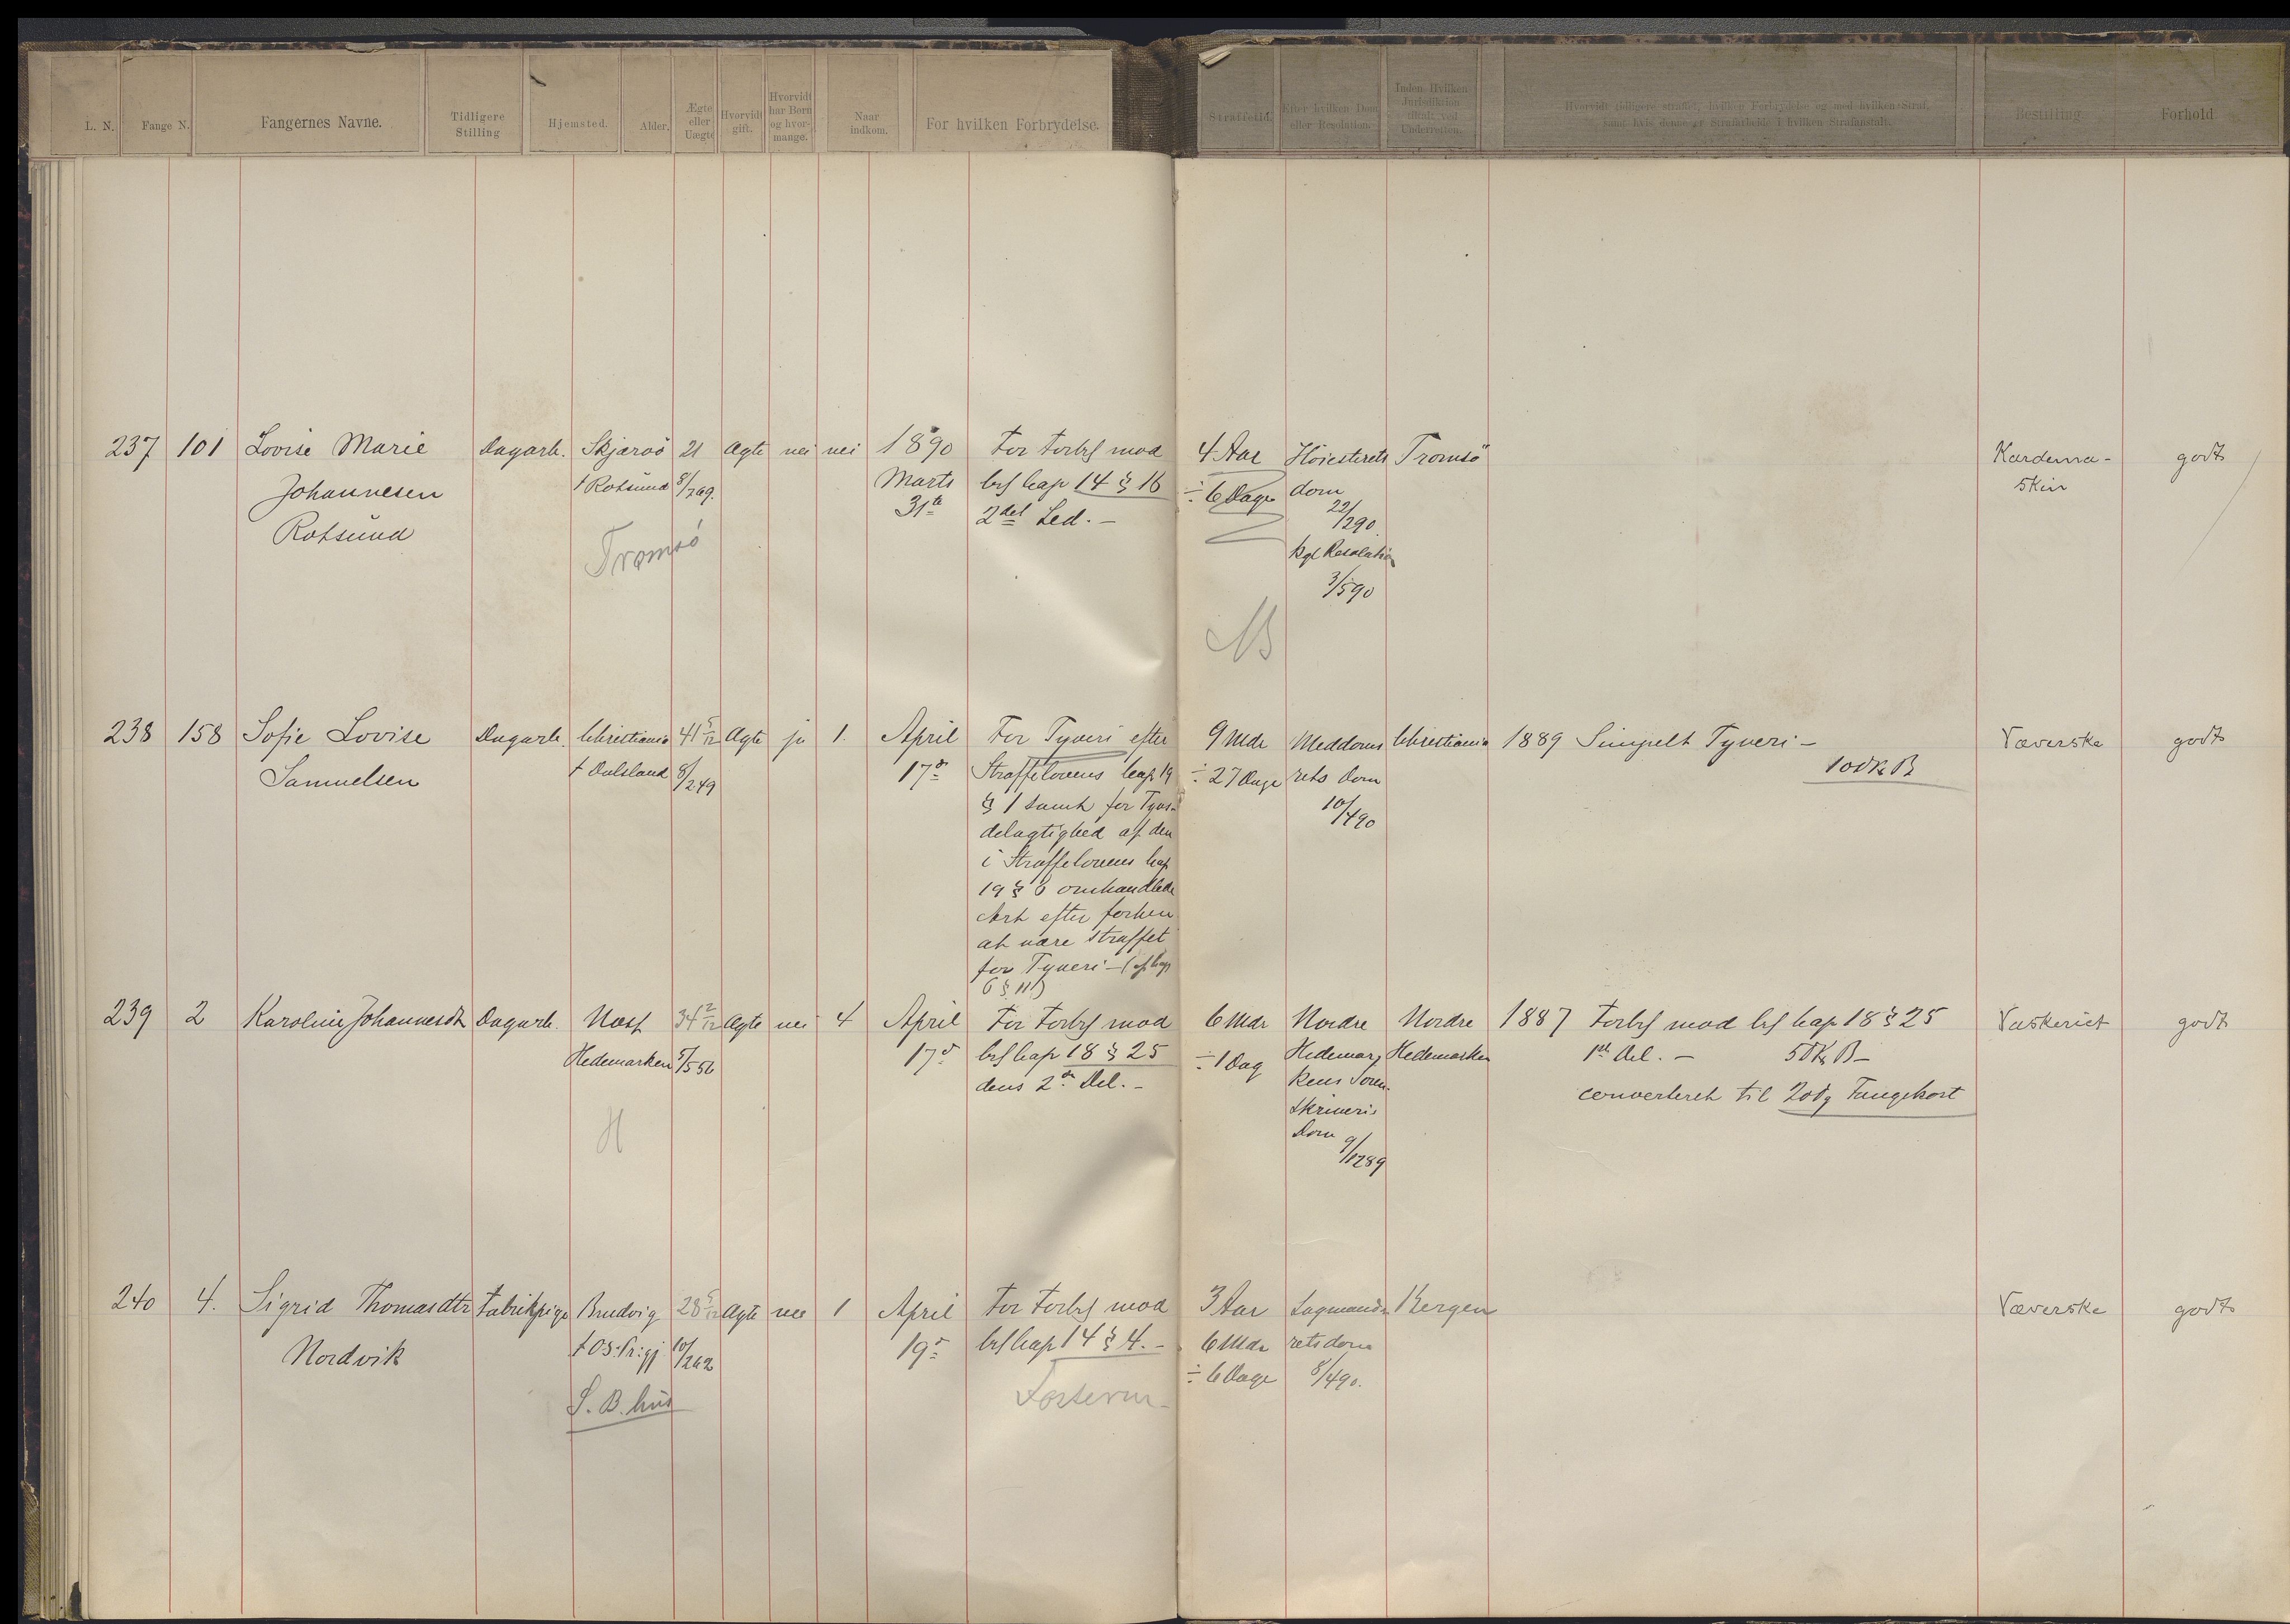 L. N.
Fange N.
Fangernes Navne.
Tidligere
Stilling
Hjemsted.
Alder.
Ægte
eller
Uægte
Hvorvidt
gift.
Hvorvidt
har Børn
og hvor-
mange.
Naar
indkom.
For hvilken Forbrydelse.
Straffetid.
Efter hvilken Dom
eller Resolution.
Inden Hvilken
Jurisdiktion
dømt ved
Underretten.
Hvorvidt tidligere straffet, hvilken Forbrydelse og med hvilken Straf,
samt hvis denne er Strafarbeide i hvilken Strafanstalt.
Bestilling
Forhold
237 101 Lovise Marie Dagarb. Skjærvö 21 Ægte nei nei 1890 For Forbr mod 4 Aar Höiesterets Tromsö Kardema- godt
Johannesen f Rotsund 8/769. Marts brl kap 14 § 16 ÷ 6 Dage dom skin
Rotsund 31te 2det Led. – 22/290.
Tromsö kgl Resolution
3/590
NB
238 158 Sofie Lovise Dagarb. Christiania 41 5/12 Ægte ja 1. April For Tyveri efter 9 Mdr Meddoms Christiania 1889 Simpelt Tyveri – Væverske godt
Samuelsen f Dalsland 8/249 17de Straffelovens kap 19 ÷ 27 Dage rets dom 10 dK B
§ 1 samt for Tyvs- 10/490
delagtighed af den
i Straffelovens kap
19 § 6 omhandlede
Art efter forhen
at være straffet
for Tyveri – (cf kap
6 § 11)
239 2 Karolin Johannesdt Dagarb. Næs 34 2/12 Ægte nei 4 April For Forbr mod 6 Mdr Nordre Nordre 1887 Forbr mod brl kap 18 § 25 Vaskeriet godt
Hedemarken 5/556 17de brl kap 18 § 25 ÷ 1 Dag Hedemar- Hedemarken 1ste Del. – 5 dK B –
dens 2den Del. – kens Soren- converteret til 20 dg Fangekost
H skriveris
Dom 9/1289
240 4. Sigrid Thomasdtr Fabrikpige Brudvig 28 5/12 Ægte nei 1 April For Forbr mod 3 Aar Lagmands Bergen Væverske godt
Nordvik f Os: Pr:gj 10/262 19de brl kap 14 § 4. – 6 Mdr retsdom
÷ 6 Dage 8/490.
S. B. hus